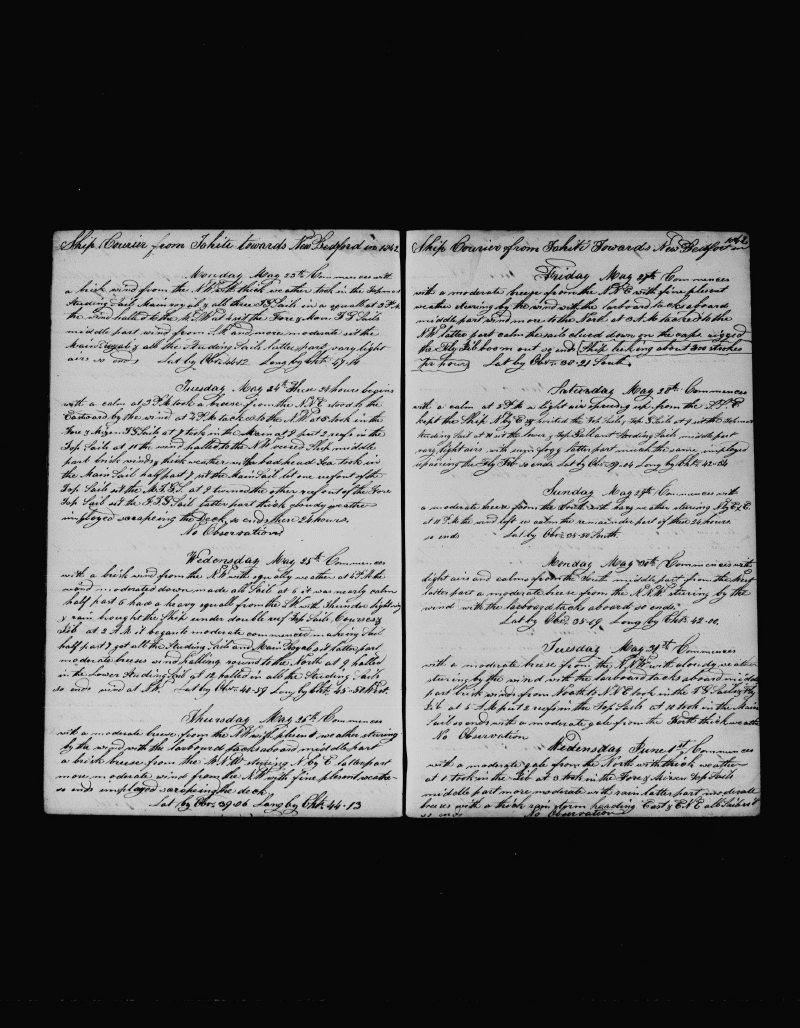 Ship Courier from Tahiti towards New Bedford in 1842
Monday May 23th Commences with
a brisk wind from the N.W. with thick weather took in the Topmast
Studing Sail Main royal & all three T.G. Sails in a squall at 3 P.M.
the wind halled to the W.S.W. at set the Fore & Main T.G. Sails
middle part wind from S.W. and more moderate set the
Main Royal & all the Studing Sails latter part vary light
airs so ends Lat by Obs. 41-12 Long by Chr. 47-14
Tuesday May 24th These 24 hours begins
with a calm at 3 P.M. took a breeze from the N.N.E. stood to the
Eastward by the wind at 4 P.M. tacked to the N.W. at 5 took in the
Fore & Mizon T.G. Sails at 7 took in the Main at 9 put 2 reefs in the
Top Sails at 11 the wind halled to the N.W. veered Ship middle
part brisk winds thick weather with a bad head Sea took in
the Main Sail half part 7 set the Main Sail let one reef out of the
Top Sail set the M.T.G.S. at 9 turned the other reef out of the Fore
Top Sail set the F.T.G. Sail latter part thick cloudy weather
imployed scrapeing the Deck so ends these 24 hours
No Observation
Wedensday May 25th Commences
with a brisk wind from the N.W. with squally weather at 4 P.M. the
wind moderated down made all Sail at 5 it was nearly calm
half part 5 had a heavy squall from the S.W. with thunder lightning
& rain brought the Ship under double reef Top Sails, Courses &
Jib at 2 A.M. it began to moderate commenced making Sail
half part 7 got all the Studing Sails and Main Royal set latter part
moderate breeses wind halling round to the North at 9 halled
in the Lower Studing Sail at 12 halled in all the Studing Sails
so ends wind at N.W. Lat by Obs. 40-59 Long by Chr. 45-50 West
Thursday May 26th Commences
with a moderate breeze from the N.W. with plesent weather stering
by the wind with the larboard tacks aboard middle part
a brisk breese from the N.N.W. stering N. by E. latter part
more moderate wind from the N.W. with fine plesent weather
so ends imployed scrapeing the deck
Lat by Obs. 39-06 Long by Chr. 44-13
Ship Courier from Tahiti Towards New Bedford in 1842
Friday May 27th Commences
with a moderate breeze from the N.E. with fine plesent
weather stering by the wind with the larboard tacks aboard
middle part wind more to the North at 3 A.M. tacked to the
N.W. latter part calm the sails clued down on the caps rigged
the Fly Jib boom out so ends Ship leking about 300 strokes
per hour Lat by Obs. 38-21 South
Saturday May 28th Commences
with a calm at 5 P.M. a light air spring up from the S.S.E.
kept the Ship N. by E. & histed the Top Sails, Top G. Sails at 7 set the Topmast
Studing Sail at 8 set the lower & Top Gallant Studing Sails middle part
vary light airs with sum fog latter part much the same imployed
repairing the Fly Jib so ends Lat by Obs. 37-04 Long by Chr. 42-54
Sunday May 29th Commences with
a moderate breeze from the South with hazy weather stering N. by E. & E.
at 11 P.M. the wind left us calm the remainder part of these 24 hours
so ends Lat by Obs. 35-50 South
Monday May 30th Commences with
light airs and calms from the South middle part from the West
latter part a moderate breese from the N.N.W. stering by the
wind with the larboard tacks aboard so ends
Lat by Obs. 35-09 Long by Chr. 42-00
Tuesday May 31st Commences
with a moderate breese from the N.N.W. with cloudy weather
stering by the wind with the larboard tacks aboard middle
part brisk winds from North to N.N.E. took in the T.G. Sails Fly
Jib at 5 A.M. put 2 reefs in the Top Sails at 10 took in the Main
Sail so ends with a moderate gale from the North thick weather
No Observation
Wedensday June 1st Commences
with a moderate gale from the North with thick weather
at 1 took in the Jib at 3 took in the Fore & Mizen Top Sails
middle part more moderate with rain latter part moderate
breeses with a thick rain storm heading East & E.N.E. all Sail set
so ends No Observation